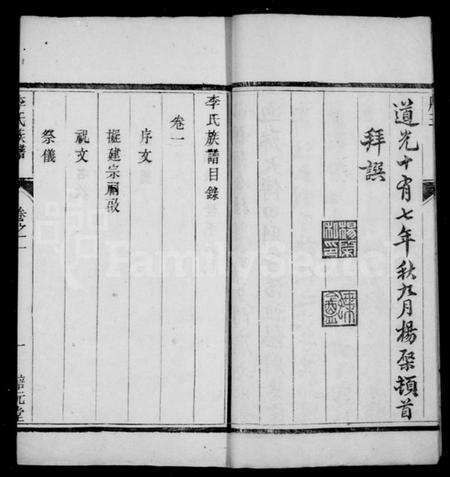 道光十有七年秋九月楊棨頓首
拜譔
李氏族譜目錄
卷一
序文
擬建宗祠啟
祝文
祭儀
李氏族譜
卷之一
一
FamilySearch